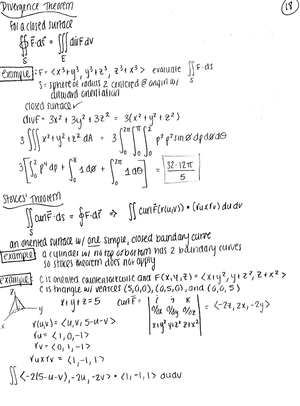 Divergence Theorem
18
For a closed surface
∯ F·ds = ∭ div F dv
S E
example: F = <x³+y³, y³+z³, z³+x³> evaluate ∬ F·ds
S = sphere of radius 2 centered @ origin w/
outward orientation
closed surface ✓
div F = 3x² + 3y² + 3z² = 3(x²+y²+z²)
3 ∭ x²+y²+z² dA = 3 ∫₀^2π ∫₀^π ∫₀² p² p² sin ø dp dø dθ
3 [ ∫₀² p⁴ dp + ∫₀^π 1 dø + ∫₀^2π 1 dθ ] = 32·12π/5
Stokes' Theorem
∬ curl F·ds = ∮ F·ds ⇒ ∬ curl F(r(u,v)) · (ru x rv) du dv
S
an oriented surface w/ one simple, closed boundary curve
example a cylinder w/ no top or bottom has 2 boundary curves
so stokes theorem does not apply
example: C is oriented counterclockwise and F(x,y,z) = <x+y², y+z², z+x²>
C is triangle w/ vertices (5,0,0), (0,5,0), and (0,0,5)
x+y+z=5 curl F = | i j k | = <-2z, 2x, -2y>
r(u,v) = <u, v, 5-u-v>
ru = <1, 0, -1>
rv = <0, 1, -1>
ru x rv = <1, -1, 1>
∬ <-2(5-u-v), -2u, -2v> · <1, -1, 1> du dv